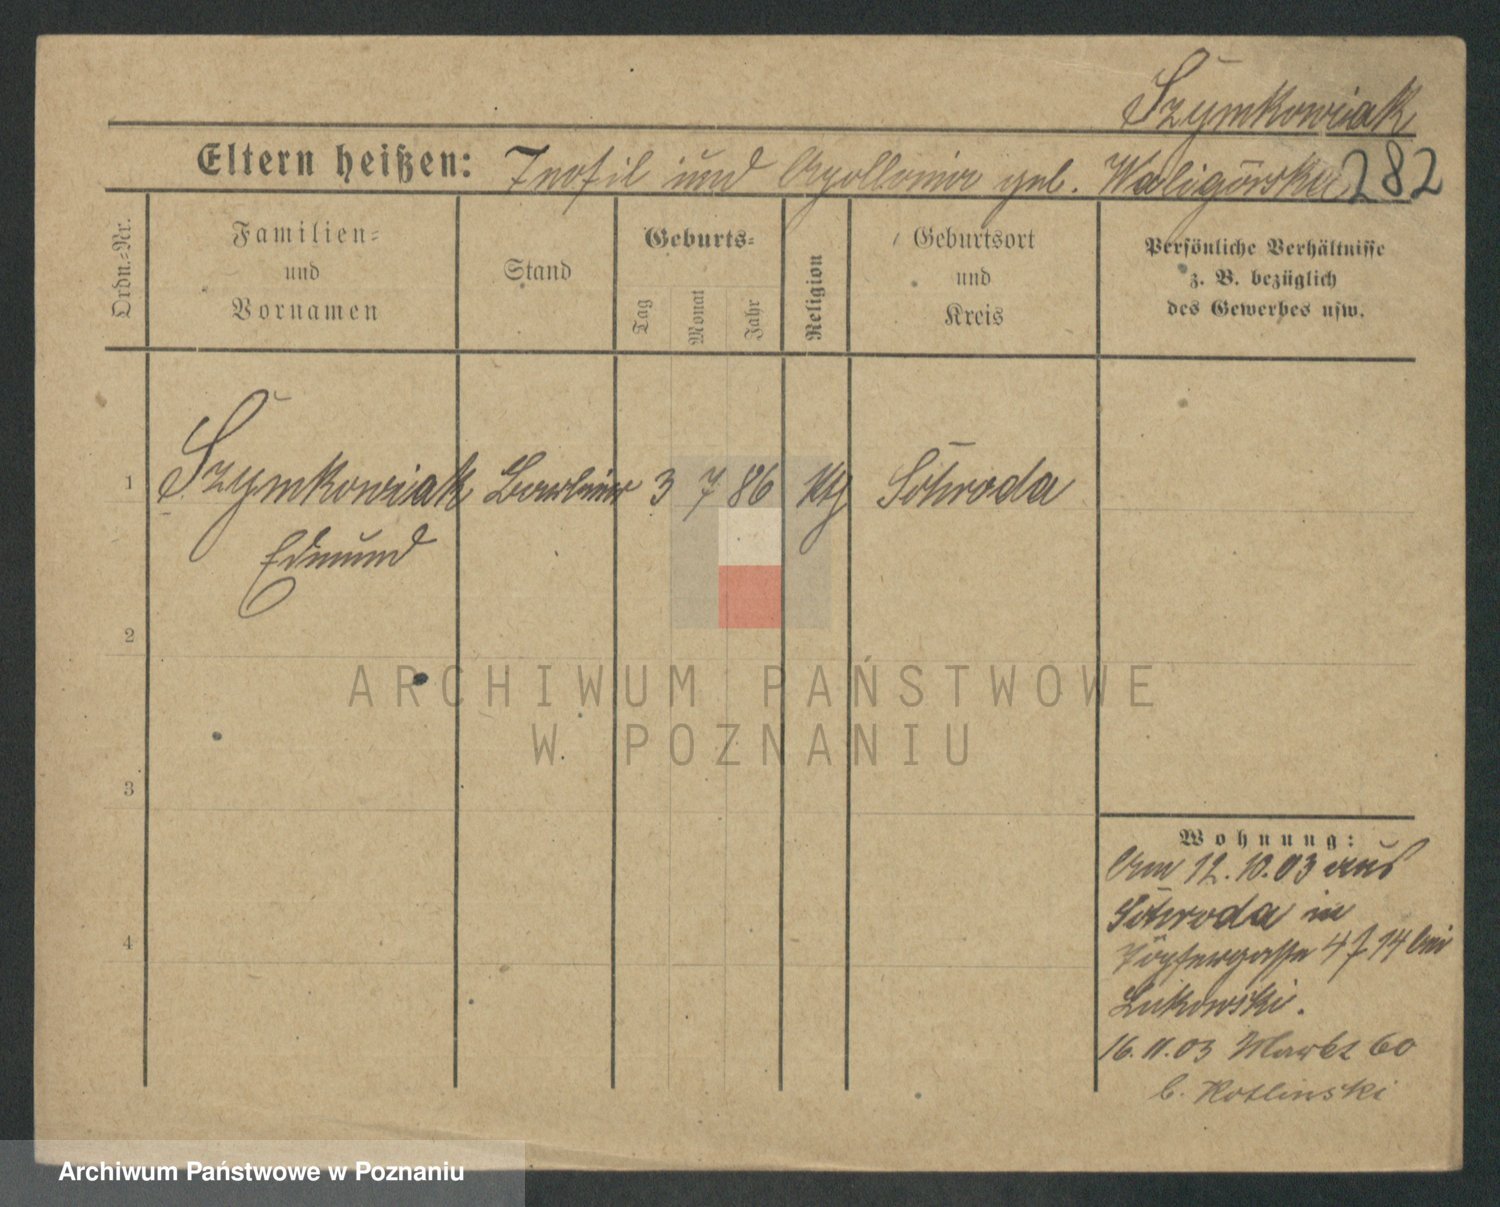 Szymkowiak
Eltern heißen: Teofil und Apollonia geb. Waligórska 282
Ordn.-Nr.
Familien- und Vornamen
Stand
Geburts-
Tag
Monat
Jahr
Religion
Geburtsort und Kreis
Persönliche Verhältnisse
z. B. bezüglich
des Gewerbes usw.
1 Szymkowiak 3 7 86 kth Schroda
Edmund
2
3
4
Wohnung:
Am 12.10.03 aus
Schroda in
Töpfergasse 4 14 bei
Lukowski.
16.11.03 Markt 60
b. Kotlinski
ARCHIWUM PAŃSTWOWE
W POZNANIU
Archiwum Państwowe w Poznaniu